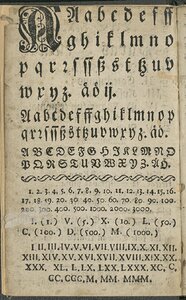 A Aabcdefſſ
ghiklmno
pqrꝛſſſßstʒuv
wxyz. äöij.
Aabcdefſghiklmnop
qrꝛſſſßstʒuvwxyz.äö.
ABCDEFGHJKLMNO
PQRSTUVWXYZ.ÄÖ.
1. 2. 3. 4. 5. 6. 7. 8. 9. 10. 11. 12. 13. 14. 15. 16.
17. 18. 19. 20. 30. 40. 50. 60. 70. 80. 90. 100.
200. 300. 400. 500. 1000. 2000. 3000.
I. (1.) V. (5.) X. (10.) L. (50.)
C. (100.) D. (500.) M. (1000.)
I II. III. IV. V. VI. VII. VIII. IX. X. XI. XII.
XIII. XIV. XV. XVI. XVII. XVIII. XIX. XX.
XXX. XL. L. LX. LXX. LXXX. XC. C.
CC. CCC. M. MM. MMM.